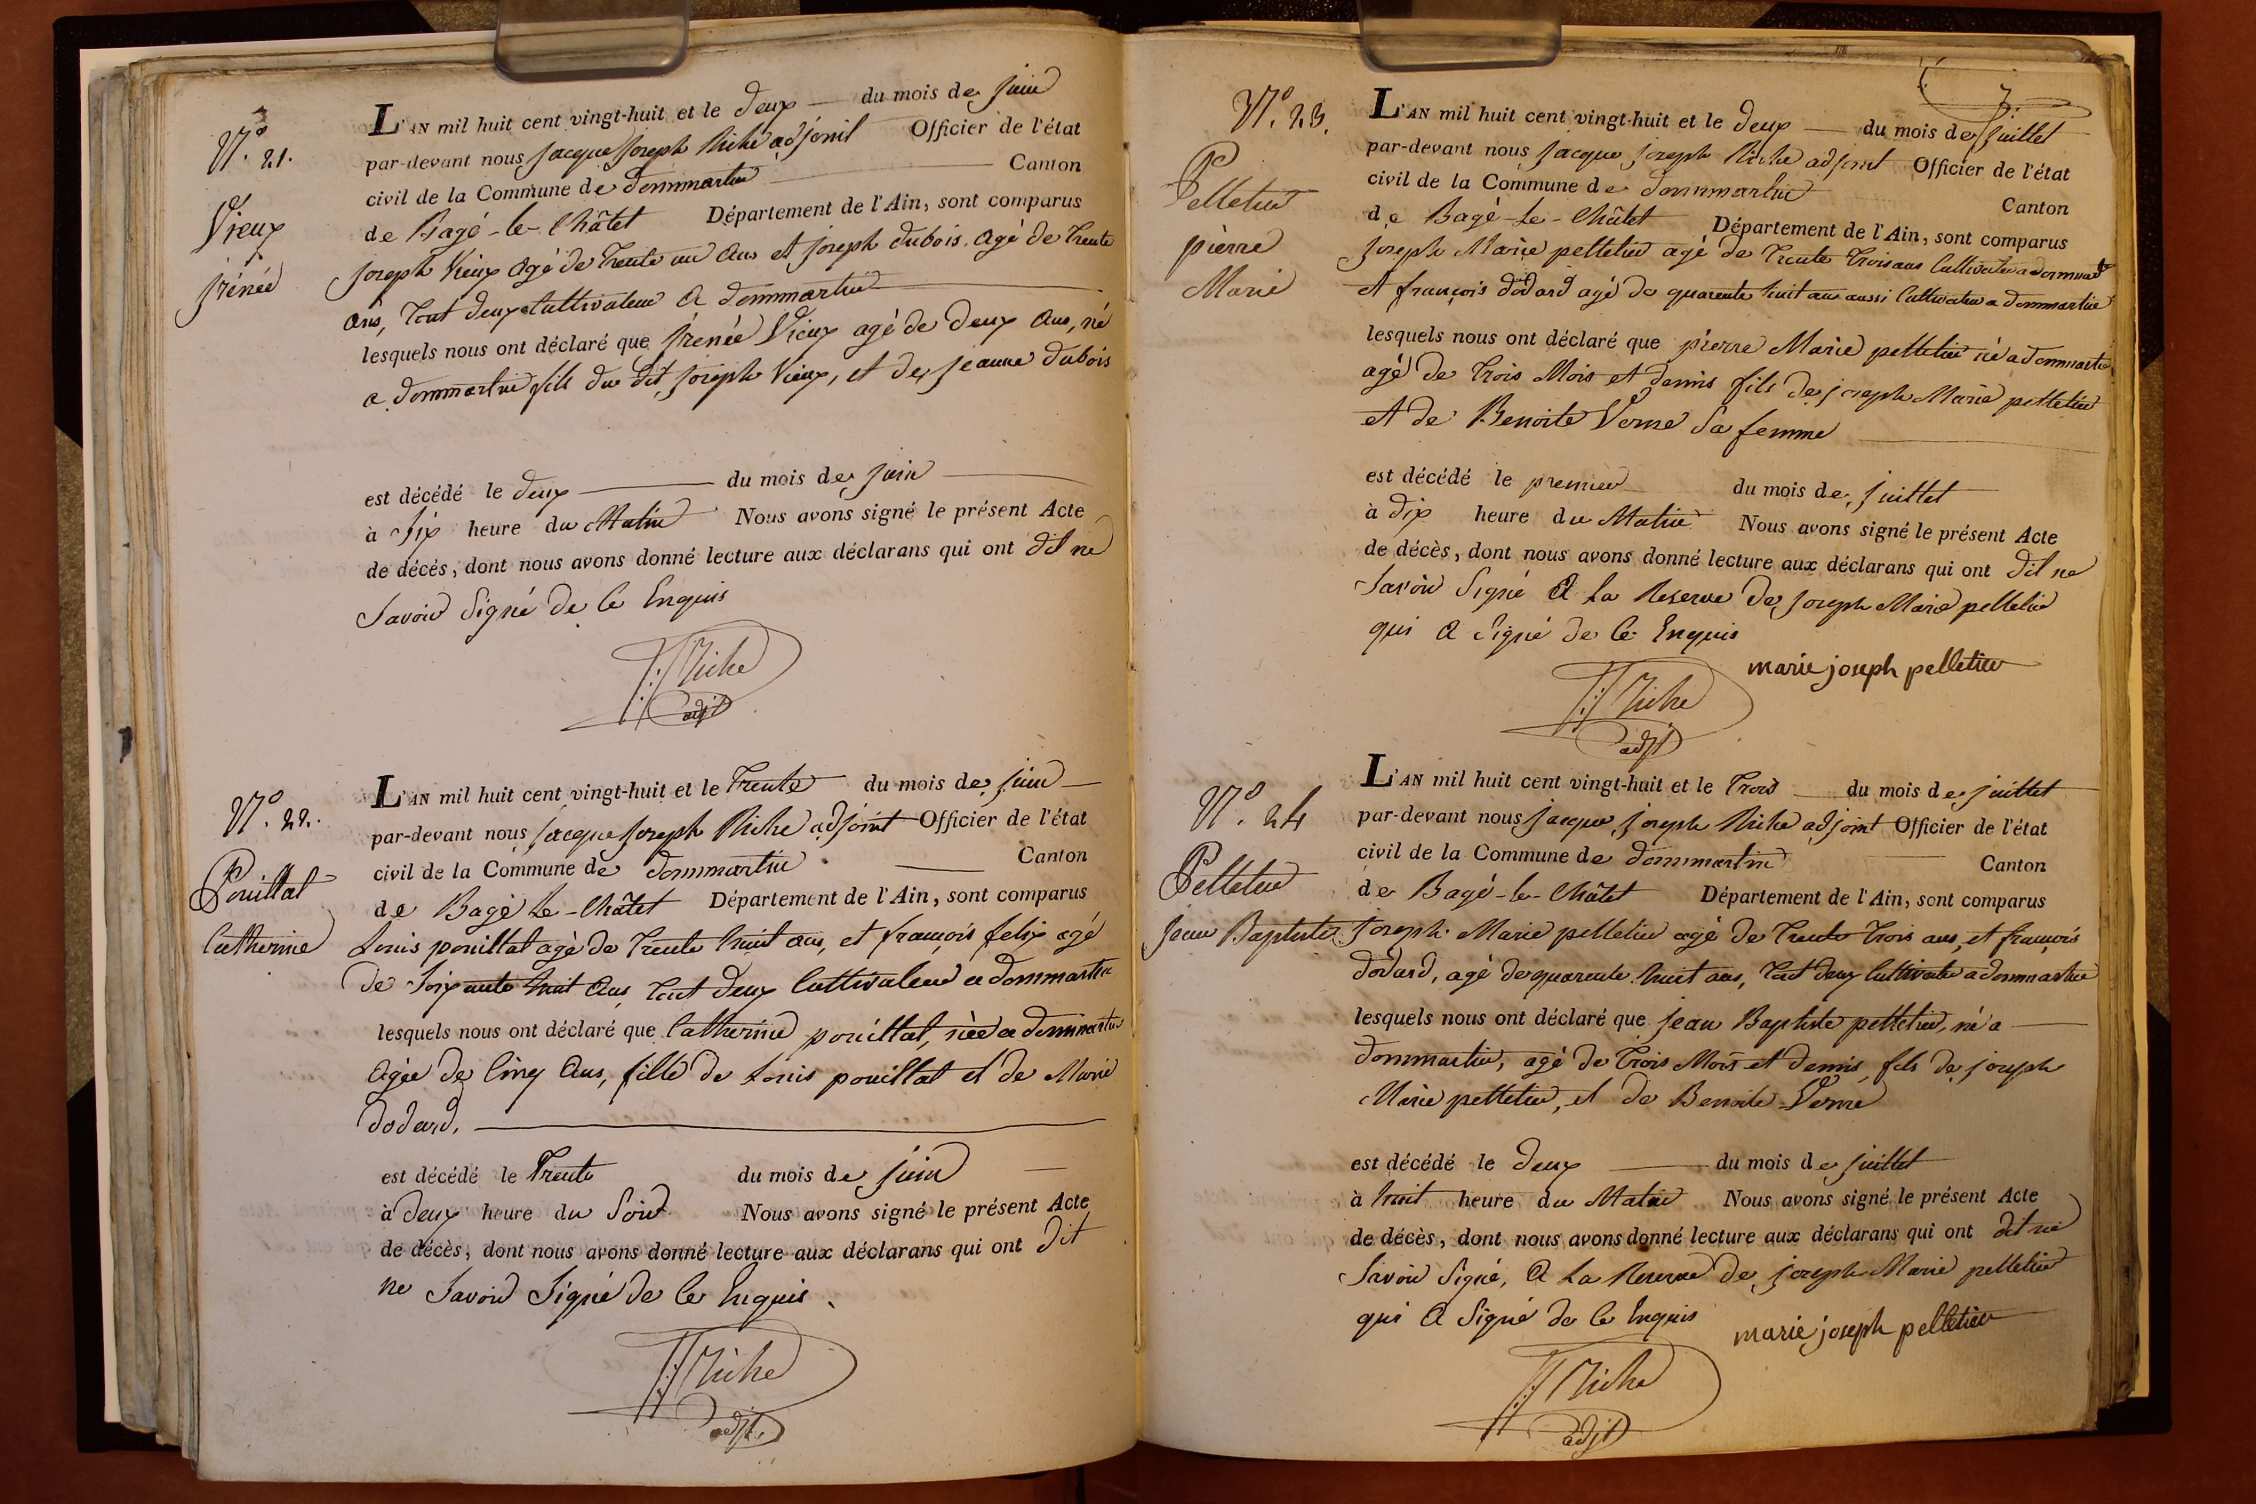 N.° 21.
Vieux
jrénée
L'AN mil huit cent vingt-huit et le deux du mois de juin
par-devant nous jacque joseph Riche adjoint Officier de l'état
civil de la Commune de dommartin Canton
de Bagé-le-Châtet Département de l'Ain, sont comparus
joseph Vieux agé de trente un ans et joseph dubois agé de trente
ans, tout deux Cultivateur a dommartin
lesquels nous ont déclaré que jrénée Vieux agé de deux ans, né
a dommartin fils du dit joseph Vieux, et de jeanne dubois
est décédé le deux du mois de juin
à six heure du Matin Nous avons signé le présent Acte
de décès, dont nous avons donné lecture aux déclarans qui ont dit ne
Savoir Signé de Ce Enquis
Riche
adjt
N.° 22.
Pouillat
Catherine
L'AN mil huit cent vingt-huit et le trente du mois de juin
par-devant nous jacque joseph Riche adjoint Officier de l'état
civil de la Commune de dommartin Canton
de Bagé Le-Châtet Département de l'Ain, sont comparus
Louis pouillat agé de trente huit ans, et françois felix agé
de soixante huit ans tout deux Cultivateur a dommartin
lesquels nous ont déclaré que Catherine pouillat, née a dommartin
agée de Cinq ans, fille de Louis pouillat et de Marie
dodard.
est décédé le trente du mois de juin
à deux heure du Soir Nous avons signé le présent Acte
de décès, dont nous avons donné lecture aux déclarans qui ont dit
ne Savoir Signé de Ce Enquis
Riche
adjt
7.
N.° 23.
Pelletier
pierre
Marie
L'AN mil huit cent vingt-huit et le deux du mois de juillet
par-devant nous jacque joseph Riche adjoint Officier de l'état
civil de la Commune de dommartin Canton
de Bagé-Le-Châtet Département de l'Ain, sont comparus
joseph Marie pelletier agé de trente trois ans Cultivateur a dommartin
et françois dodard agé de quarente huit ans aussi Cultivateur a dommartin
lesquels nous ont déclaré que pierre Marie pelletier né a dommartin
agé de trois Mois et demis fils de joseph Marie pelletier
et de Benoite Verne Sa femme
est décédé le premier du mois de juillet
à dix heure du Matin Nous avons signé le présent Acte
de décès, dont nous avons donné lecture aux déclarans qui ont dit ne
Savoir Signé A La Reserve de joseph Marie pelletier
qui A Signé de Ce Enquis
marie joseph pelletier
Riche
adjt
N.° 24
Pelletier
jean Baptiste
L'AN mil huit cent vingt-huit et le trois du mois de juillet
par-devant nous jacque joseph Riche adjoint Officier de l'état
civil de la Commune de dommartin Canton
de Bagé-le-Châtet Département de l'Ain, sont comparus
joseph Marie pelletier agé de trente trois ans, et françois
dodard, agé de quarente huit ans, tout deux Cultivateur a dommartin
lesquels nous ont déclaré que jean Baptiste pelletier, né a
dommartin, agé de trois Mois et demis, fils de joseph
Marie pelletier, et de Benoite Verne
est décédé le deux du mois de juillet
à huit heure du Matin Nous avons signé le présent Acte
de décès, dont nous avons donné lecture aux déclarans qui ont dit ne
Savoir Signé, A La Reserve de joseph Marie pelletier
qui A Signé de Ce Enquis
marie joseph pelletier
Riche
adjt